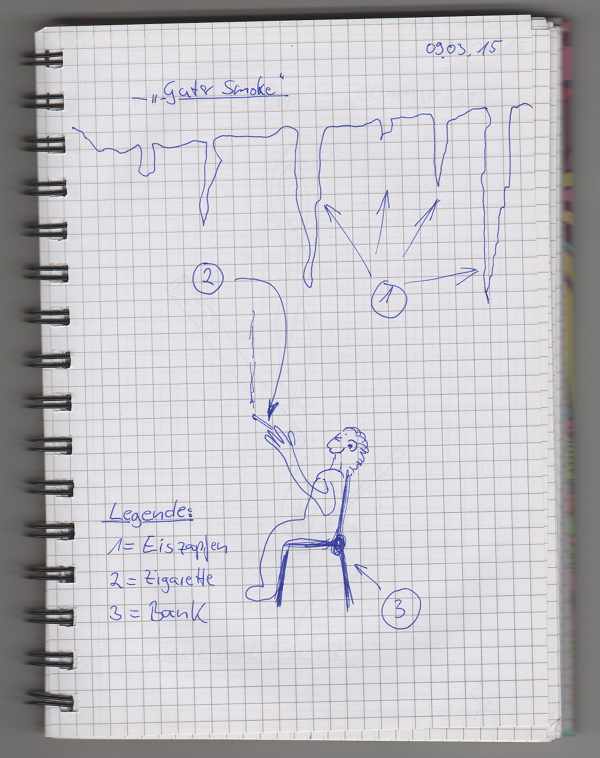 09.03.15
"Guter Smoke"
2
1
Legende:
1 = Eiszapfen
2 = Zigarette
3 = Bank
3